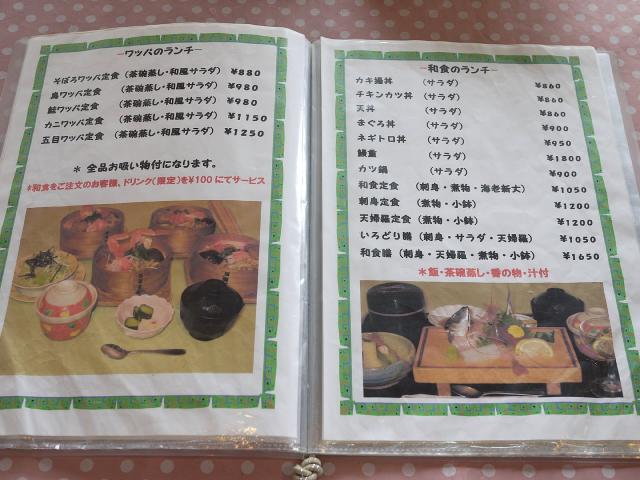 -ワッパのランチ-
そぼろワッパ定食 (茶碗蒸し・和風サラダ) ¥880
鳥ワッパ定食 (茶碗蒸し・和風サラダ) ¥980
鮭ワッパ定食 (茶碗蒸し・和風サラダ) ¥980
カニワッパ定食 (茶碗蒸し・和風サラダ) ¥1150
五目ワッパ定食 (茶碗蒸し・和風サラダ) ¥1250
* 全品お吸い物付になります。
*和食をご注文のお客様、ドリンク(限定)を¥100にてサービス
-和食のランチ-
カキ揚丼 (サラダ) ¥860
チキンカツ丼 (サラダ) ¥860
天丼 (サラダ) ¥860
まぐろ丼 (サラダ) ¥900
ネギトロ丼 (サラダ) ¥950
鰻重 (サラダ) ¥1800
カツ鍋 (サラダ) ¥900
和食定食 (刺身・煮物・海老新丈) ¥1050
刺身定食 (煮物・小鉢) ¥1200
天婦羅定食 (煮物・小鉢) ¥1200
いろどり膳 (刺身・サラダ・天婦羅) ¥1050
和食膳 (刺身・天婦羅・煮物・小鉢) ¥1650
*飯・茶碗蒸し・香の物・汁付